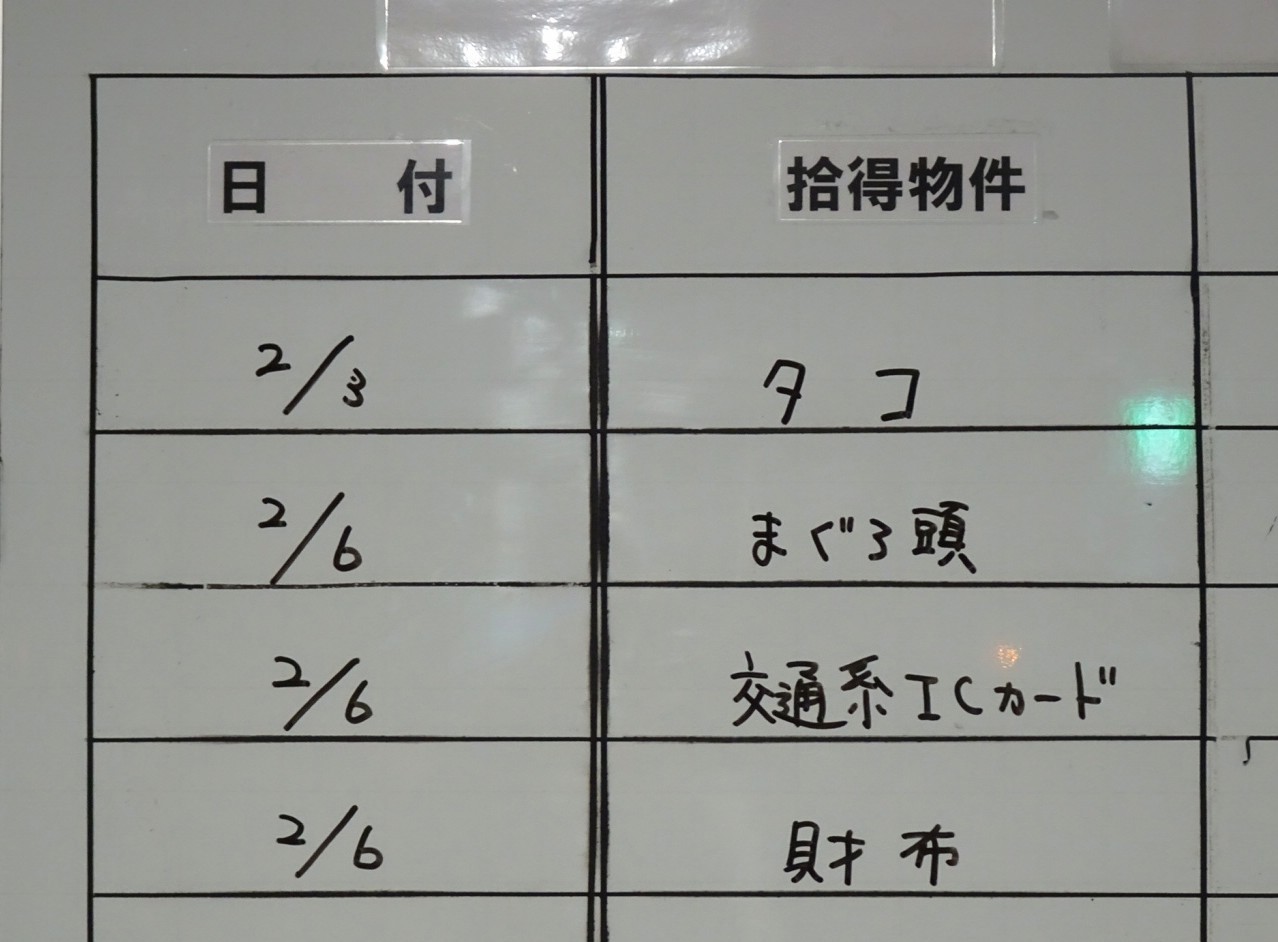 日　付　拾得物件
2/3　タコ
2/6　まぐろ頭
2/6　交通系ICカード
2/6　財布